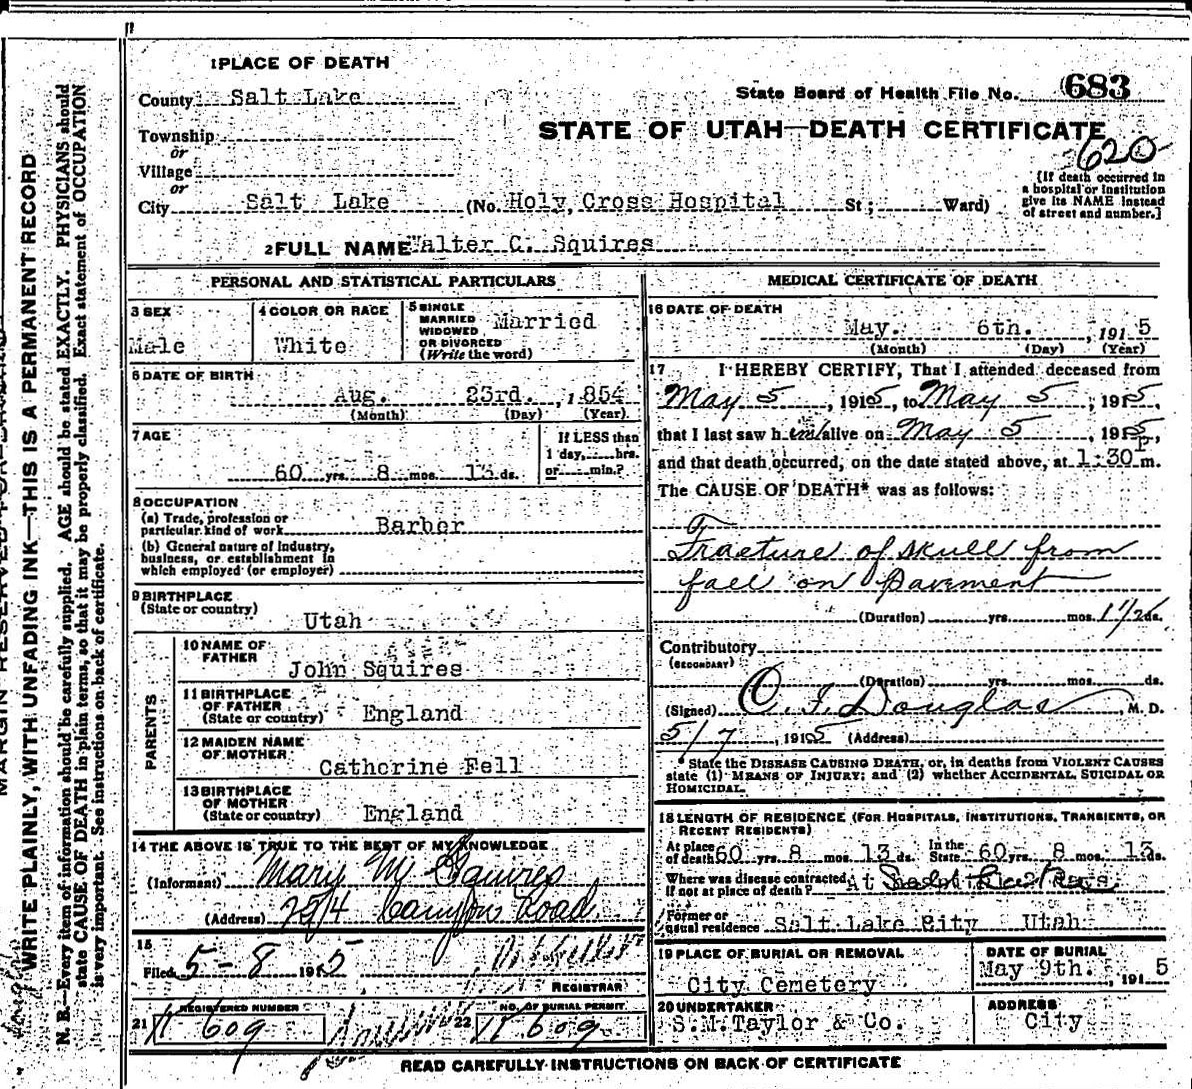 1 PLACE OF DEATH
County Salt Lake
State Board of Health File No. 683
Township
or
STATE OF UTAH—DEATH CERTIFICATE
620
Village
or
City Salt Lake (No. Holy Cross Hospital St; Ward)
[If death occurred in a hospital or institution give its NAME instead of street and number.]
2 FULL NAME Walter C. Squires
PERSONAL AND STATISTICAL PARTICULARS
3 SEX
Male
4 COLOR OR RACE
White
5 SINGLE MARRIED WIDOWED OR DIVORCED (Write the word)
Married
6 DATE OF BIRTH
Aug. 23rd. , 1854
(Month) (Day) (Year)
7 AGE
60 yrs. 8 mos. 13 ds.
If LESS than 1 day, hrs. or min.?
8 OCCUPATION
(a) Trade, profession or particular kind of work Barber
(b) General nature of industry, business, or establishment in which employed (or employer)
9 BIRTHPLACE
(State or country)
Utah
PARENTS
10 NAME OF FATHER
John Squires
11 BIRTHPLACE OF FATHER
(State or country) England
12 MAIDEN NAME OF MOTHER
Catherine Fell
13 BIRTHPLACE OF MOTHER
(State or country) England
14 THE ABOVE IS TRUE TO THE BEST OF MY KNOWLEDGE
(Informant) Mary M Squires
(Address) Canyon Road
15
Filed 5-8 1915
REGISTRAR
REGISTERED NUMBER
21 609
NO. OF BURIAL PERMIT
22 609
MEDICAL CERTIFICATE OF DEATH
16 DATE OF DEATH
May. 6th. , 1915
(Month) (Day) (Year)
17 I HEREBY CERTIFY, That I attended deceased from
May 5 , 1915, to May 5 , 1915,
that I last saw him alive on May 5 , 1915,
and that death occurred, on the date stated above, at 1:30 m.
The CAUSE OF DEATH* was as follows:
Fracture of skull from
fall on Pavement
(Duration) yrs. mos. 1 1/2 ds.
Contributory
(SECONDARY)
(Duration) yrs. mos. ds.
(Signed) Douglas, M. D.
5/7 , 1915 (Address)
*State the DISEASE CAUSING DEATH, or, in deaths from VIOLENT CAUSES
state (1) MEANS OF INJURY; and (2) whether ACCIDENTAL, SUICIDAL OR
HOMICIDAL.
18 LENGTH OF RESIDENCE (FOR HOSPITALS, INSTITUTIONS, TRANSIENTS, OR
RECENT RESIDENTS)
At place of death 60 yrs. 8 mos. 13 ds. In the State 60 8 13
Where was disease contracted if not at place of death? At
Former or usual residence Salt Lake City Utah
19 PLACE OF BURIAL OR REMOVAL
City Cemetery
DATE OF BURIAL
May 9th. , 1915
20 UNDERTAKER
S.M.Taylor & Co.
ADDRESS
City
READ CAREFULLY INSTRUCTIONS ON BACK OF CERTIFICATE
MARGIN RESERVED FOR BINDING
WRITE PLAINLY, WITH UNFADING INK—THIS IS A PERMANENT RECORD
N. B.—Every item of information should be carefully supplied. AGE should be stated EXACTLY. PHYSICIANS should
state CAUSE OF DEATH in plain terms, so that it may be properly classified. Exact statement of OCCUPATION
is very important. See instructions on back of certificate.